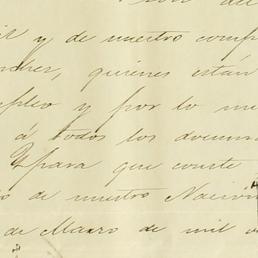 y de nuestro comp
quienes están
mpleo y por lo me
á todos los docum
Y para que conste
o de nuestro Nacim
de Marzo de mil o